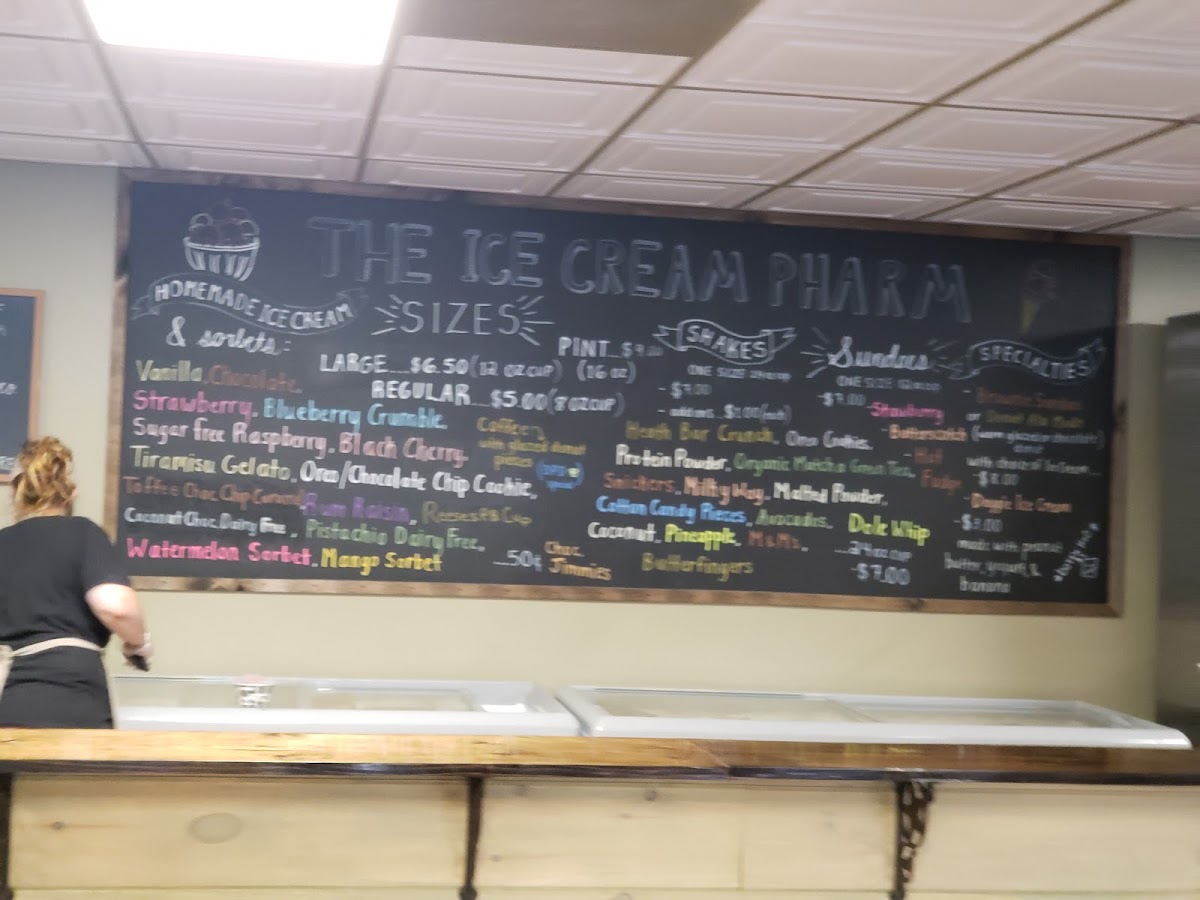 THE ICE CREAM PHARM
HOMEMADE ICE CREAM
& sorbets:
Vanilla, Chocolate,
Strawberry, Blueberry Crumble,
Sugar free Raspberry, Black Cherry,
Tiramisu Gelato, Oreo/Chocolate Chip Cookie,
Toffee Choc. Chip Caramel, Rum Raisin, Reeses PB Cup
Coconut Choc. Dairy Free, Pistachio Dairy Free,
Watermelon Sorbet, Mango Sorbet
SIZES
PINT...
(16 oz)
LARGE....$6.50 (12 oz cup)
REGULAR...$5.00 (8 oz cup)
Coffee
with glazed donut
pieces
....50¢ Choc.
Jimmies
SHAKES
ONE SIZE 24
- $9.00
Heath Bar Crunch, Oreo Cookies,
Protein Powder, Organic Matcha Green Tea,
Snickers, Milky Way, Malted Powder,
Cotton Candy Pieces, Avocados,
Coconut, Pineapple, M&M's,
Butterfingers
Sundaes
ONE SIZE 12
Strawberry
- Butterscotch
- Hot
Fudge
Dole Whip
...24 oz cup
- $7.00
SPECIALTIES
- Brownie Sundae
or
with choice of Ice Cream...
$8.00
- Doggie Ice Cream
- $3.00
made with peanut
butter, yogurt, &
banana